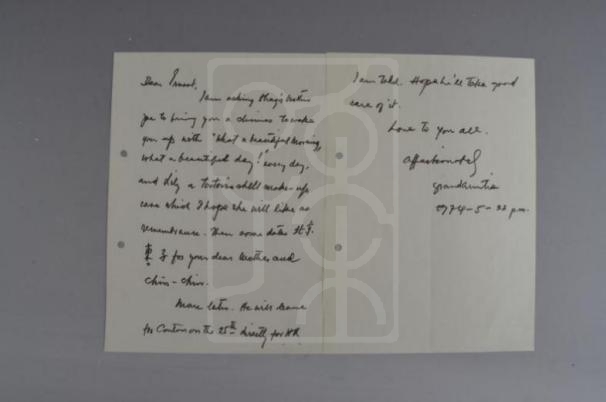 Dear Ernest,
I am asking
Joe to bring you a chimes to wake
you up with "What a beautiful morning,
what a beautiful day!" every day,
and Lily a tortoise shell make-up
case which I hope she will like as
remembrance. Then some dates
for your dear mother and
chin-chin.
More later. He will leave
for Canton on the 25th directly for H.K.
I am told. Hope he'll take good
care of it.
Love to you all.
Affectionately
grandauntie
1974-5-22 p.m.